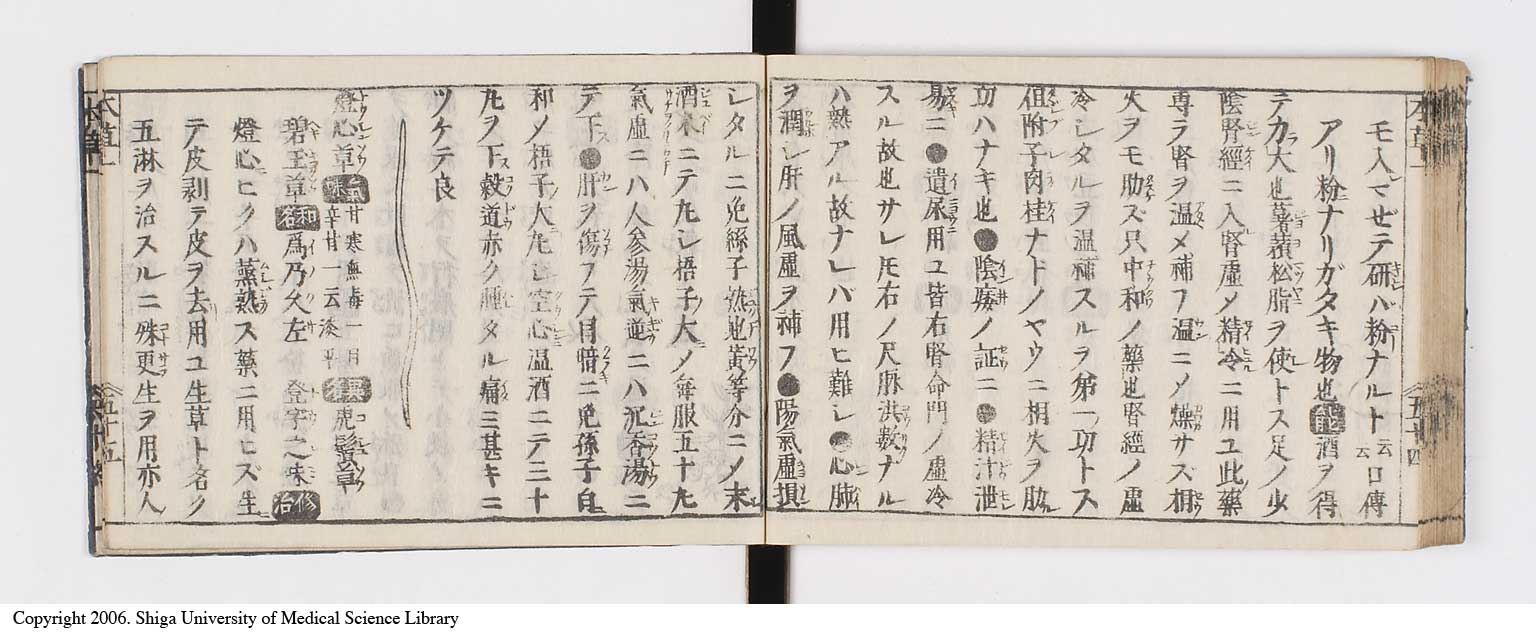 モ入マゼテ研バ粉ナルト云云口傳
アリ粉ナリガタキ物也能酒ヲ得
テカ大也薯蕷松脂ヲ使トス足ノ少
陰腎經ニ入腎虚メ精冷ニ用ユ此藥
専ラ腎ヲ温メ補フ温ニメ燥サズ相
火ヲモ助ズ只中和ノ藥也腎經ノ虚
冷シタルヲ温補スルヲ第一功トス
但附子肉桂ナドノヤウニ相火ヲ助
功ハナキ也●陰痿ノ証ニ●精汁泄
易ニ●遺尿用ユ皆右腎命門ノ虚冷
スル故也サレ𪜈右ノ尺脉洪數ナル
ハ熱アル故ナレバ用ヒ難シ●心肺
ヲ潤シ肝ノ風虚ヲ補フ●陽氣虚損
シタルニ兎絲子熟地黄等分ニメ末
酒米ニテ丸シ梧子大ノ毎服五十丸
氣虚ニハ人参湯氣逆ニハ沉香湯ニ
テ下●肝ヲ傷フテ目暗ニ兎孫子自
和ノ梧子大丸シ空心温酒ニテ三十
丸ヲ下穀道赤ク腫タル痛三甚キニ
ツケテ良
燈心草氣味甘寒無毒一月辛甘一云淡平異名虎鬚草
碧玉草和名爲乃久左 登字之味修治
燈心ヒクハ蒸熟ス藥ニ用ヒズ生
テ皮剥テ皮ヲ去用ユ生草ト名ク
五淋ヲ治スルニ殊更生ヲ用亦人
本草一
五十五
Copyright 2006. Shiga University of Medical Science Library